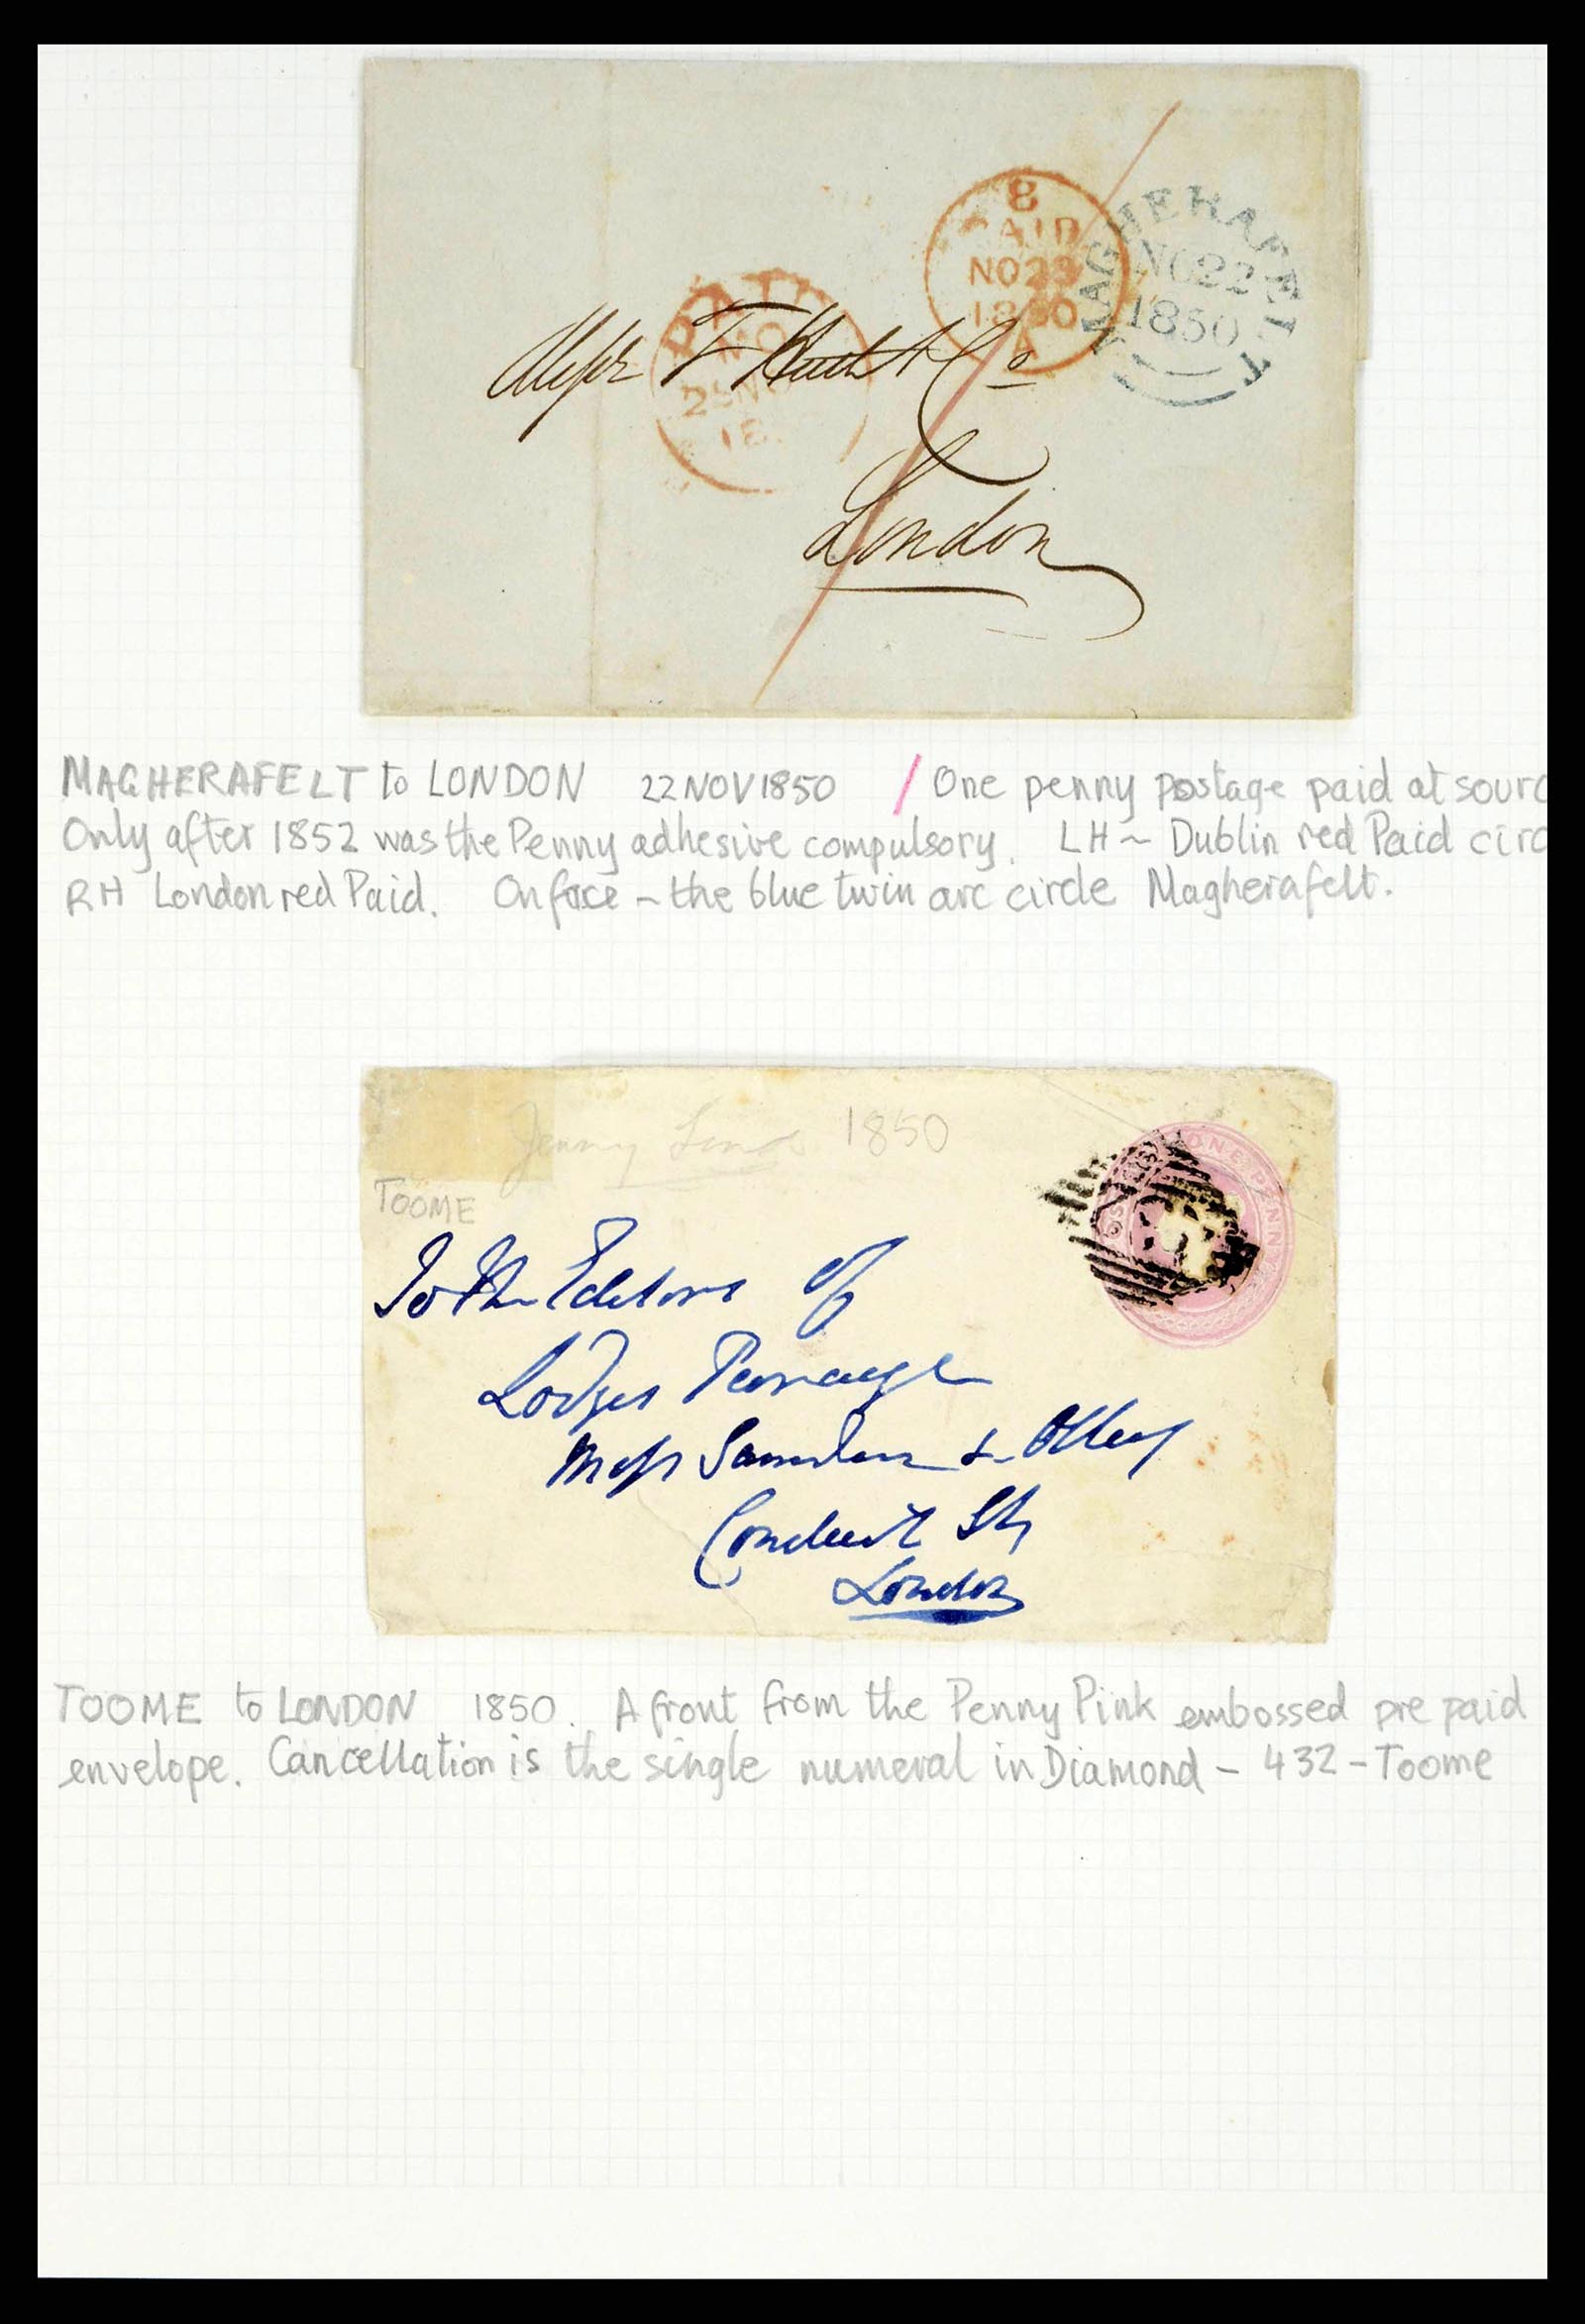 8
PAID
NO 23
1850
A
MAGHERAFELT
NO 22
1850
PAID
NO
18
Messr F Huth & Co
London
MAGHERAFELT to LONDON 22 NOV 1850 / One penny postage paid at sourc
Only after 1852 was the Penny adhesive compulsory. LH ~ Dublin red Paid circ
RH London red Paid. On face - the blue twin arc circle Magherafelt.
Jenny Lind 1850
TOOME
ONE PENNY
To the Editors of
Lodges Peerage
Messrs Saunders & Otley
Conduit St,
London
TOOME to LONDON 1850. A front from the Penny Pink embossed pre paid
envelope. Cancellation is the single numeral in Diamond - 432 - Toome